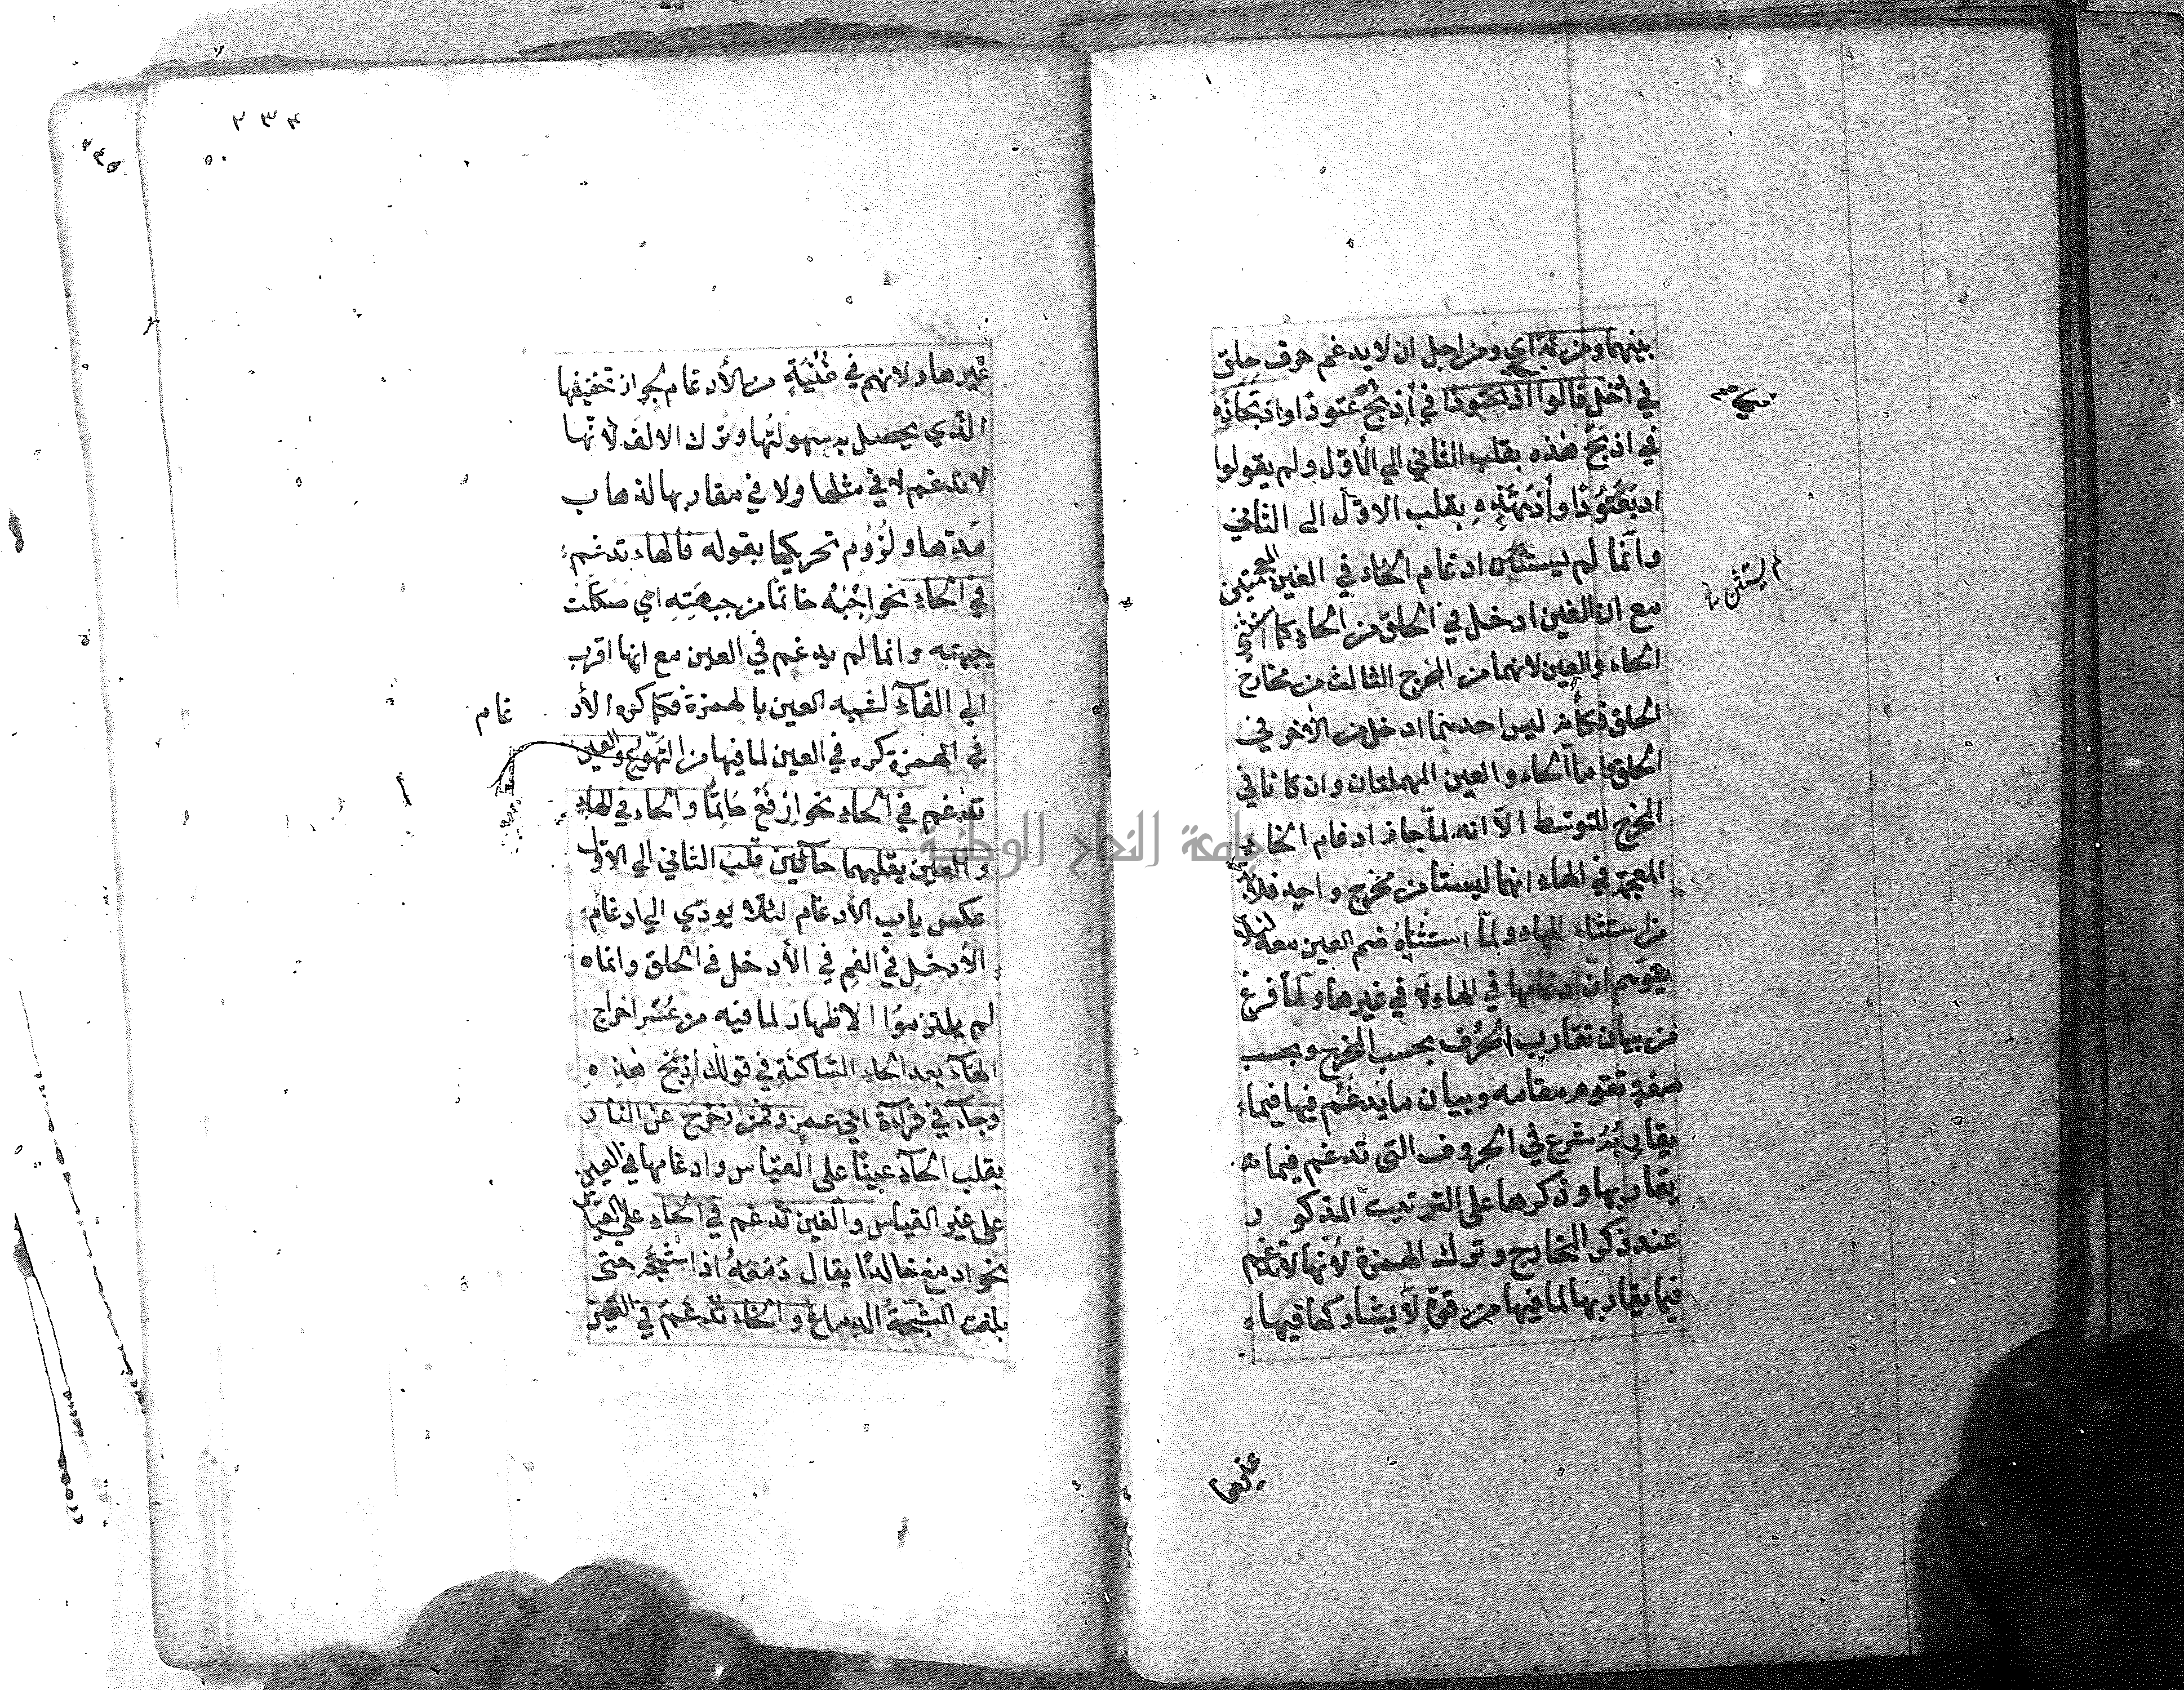 بينهما ومن ثمه اي ومن اجل ان لا يدغم حرف حلق
في ادخل قالوا اذبحتودا في أذبح عتودا واذبحاذه
في اذبح هذه بقلب الثاني الي الاول ولم يقولوا
اذبعتودا وأذبهذه بقلب الاول الى الثاني
وانما لم يستثن ادغام الخاء في الغين المعجمتين
مع ان الغين ادخل في الحلق من الخاء كما استثني
الحاء والعين لانهما من المخرج الثالث من مخارج
الحلق فكأنه ليس احدهما ادخل من الاخر في
الحلق واما الحاء والعين المهملتان وان كانا في
المخرج المتوسط الا انه لما جاز ادغام الحاء
المعجمة في الهاء انهما ليستا من مخرج واحد فلا بد
من استثناء الهاء ولما استثناه ضم العين معه لئلا
يتوهم ان ادغامها في الهاء لا في غيرها ولما فرغ
من بيان تقارب الحرف بحسب المخرج وبحسب
صفة تقوم مقامه وبيان ما يدغم فيها فيما
يقاربه شرع في الحروف التي تدغم فيما
يقاربها وذكرها على الترتيب المذكور
عند ذكر المخارج وترك الهمزة لانها لا تدغم
فيما يقاربها لما فيها من قوة لا يشاركها فيها
غيرها
٢٣٤
غيرها ولانهم في غنية من الأدغام لجواز تخفيفها
الذي يحصل به سهولتها وترك الالف لانها
لا تدغم لا في مثلها ولا في مقاربها لذهاب
مدتها ولزوم تحريكها بقوله فالهاء تدغم
في الحاء نحو اجبه حاتما من جبهته اي صككت
جبهته وانما لم يدغم في العين مع انها اقرب
الي الهاء لشبه العين بالهمزة فكما كره الأد
غام
في الهمزة كره في العين لما فيها من التهوع والعين
تدغم في الحاء نحو ارفع حاتما والحاء في الهاء
والعين بقلبهما حائين قلب الثاني الي الاول
عكس باب الأدغام لئلا يودي الي ادغام
الأدخل في الفم في الأدخل في الحلق وانما
لم يلتزموا الاظهار لما فيه من عسر اخراج
الهاء بعد الحاء الساكنة في قولك اذبح هذه
وجاء في قراءة ابي عمرو فمن زحزح عن النار
بقلب الحاء عينا على القياس وادغامها في العين
على غير القياس والغين تدغم في الخاء على القياس
نحو ادمغ خالدا يقال دمغه اذا شجه حتى
بلغت الشجة الدماغ والخاء تدغم في الغين